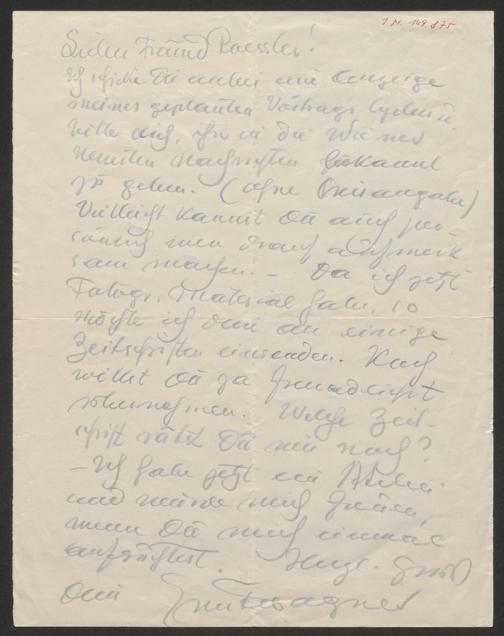 I.N. 149.875
Lieber Freund Roessler!
Ich schicke Dir anbei eine Anzeige
meines geplanten Vortrags Cyclus u.
bitte Dich, ihn in die Wiener
Neuesten Nachrichten bekannt
zu geben. (ohne Preisangabe)
Vielleicht kannst Du auch per-
sönlich man drauf aufmerk
sam machen. – Da ich jetzt
Fotogr. Material habe, so
möchte ich dies an einige
Zeitschriften einsenden. Das
willst Du ja freundlichst
übernehmen. Welche Zeit-
schrift rätst Du mir noch?
– Ich habe jetzt ein Atelier
und würde mich freuen,
wenn Du mich einmal
aufsuchtest. Herzl. Gruß
Dein